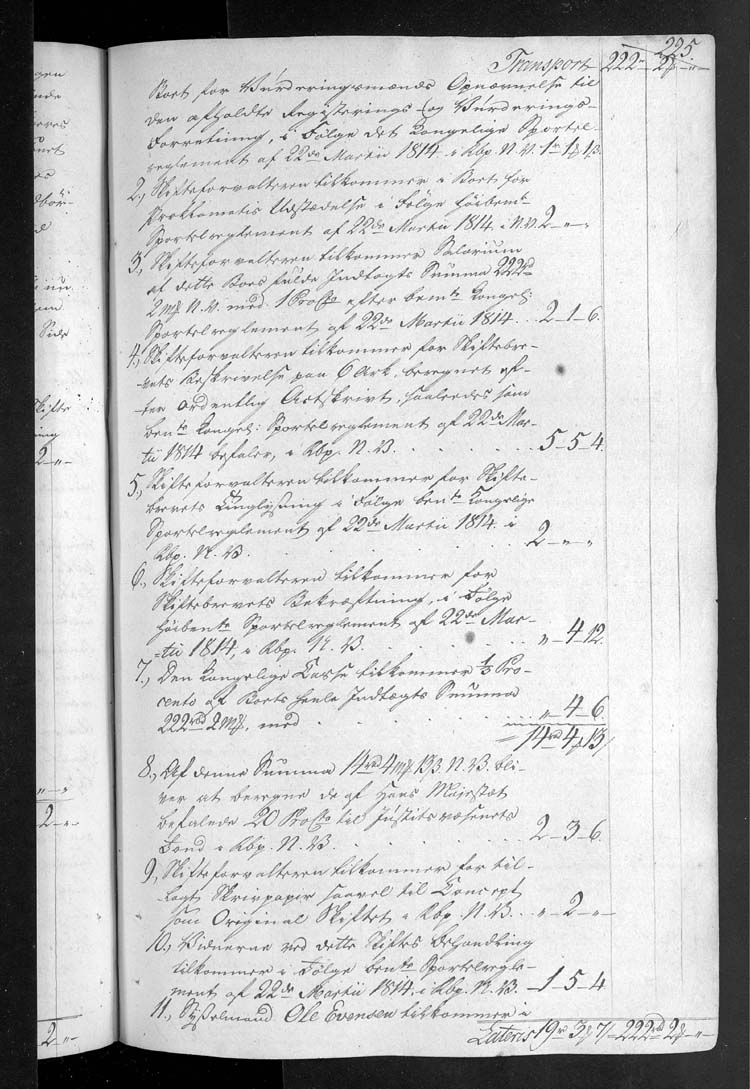 225.
Transport 222 „ 2 „ „
Boet for Vurderingsmænds Opnævnelse til
den afholdte Registerings og Vurderings-
Forretning, i Følge det Kongelige Sportel-
reglement af 22de Martii 1814 i Rbp. N. V. 1 „ 1 „ 13.
2., Skifteforvalteren tilkommer i Boet for
Proklamatis Udstædelse i Følge høibemte
Sportelreglement af 22de Martii 1814 i N. V. 2 „ „
3., Skifteforvalteren tilkommer Salarium
af dette Boes fulde Indtægts Summa 222rd
2 mk N. V. med 1 Procto efter bemte Kongel:
Sportelreglement af 22de Martii 1814 . . 2 - 1 - 6.
4., Skifteforvalteren tilkommer for Skiftebre-
vets Beskrivelse paa 6 Ark, beregnet ef-
ter ordentlig Actskrivt, saaledes som
bemte Kongel: Sportelreglement af 22de Mar-
tii 1814 befaler, i Rbp. N. V. . . . . 5 - 5 - 4.
5., Skifteforvalteren tilkommer for Skifte-
brevets Tinglysning i Følge bemte Kongelige
Sportelreglement af 22de Martii 1814 i
Rbp. N. V. . . . . 2 - „ - „
6., Skifteforvalteren tilkommer for
Skiftebrevets Bekræftning, i Følge
høibemte Sportelreglement af 22de Mar-
tii 1814, i Rbp. N. V. . . . . „ - 4 - 12.
7., Den Kongelige Casse tilkommer 1/3 Pro-
cento af Boets heele Indtægts Summa
222rbd 2 mk, med . . . . „ - 4 - 6.
= 14rd 4 13
8., Af denne Summa 14rd 4 mk 13 s. N. V. bli-
ver at beregne de af Hans Majestæt
befalede 20 Procto til Justitsvæsenets
Fond i Rbp. N. V. . . . . 2 - 3 - 6.
9., Skifteforvalteren tilkommer for til-
lagt Skrivpapir saavel til Concept
som Original Skiftet i Rbp. N. V. . . „ - 2 - „
10., Vidnerne ved dette Skiftes Behandling
tilkommer i Følge bemte Sportelregle-
ment af 22de Martii 1814, i Rbp. N. V. - 1 - 5 - 4
11., Sysselmand Ole Evensen tilkommer i
Lateris 19 3 7 222rd 2 „